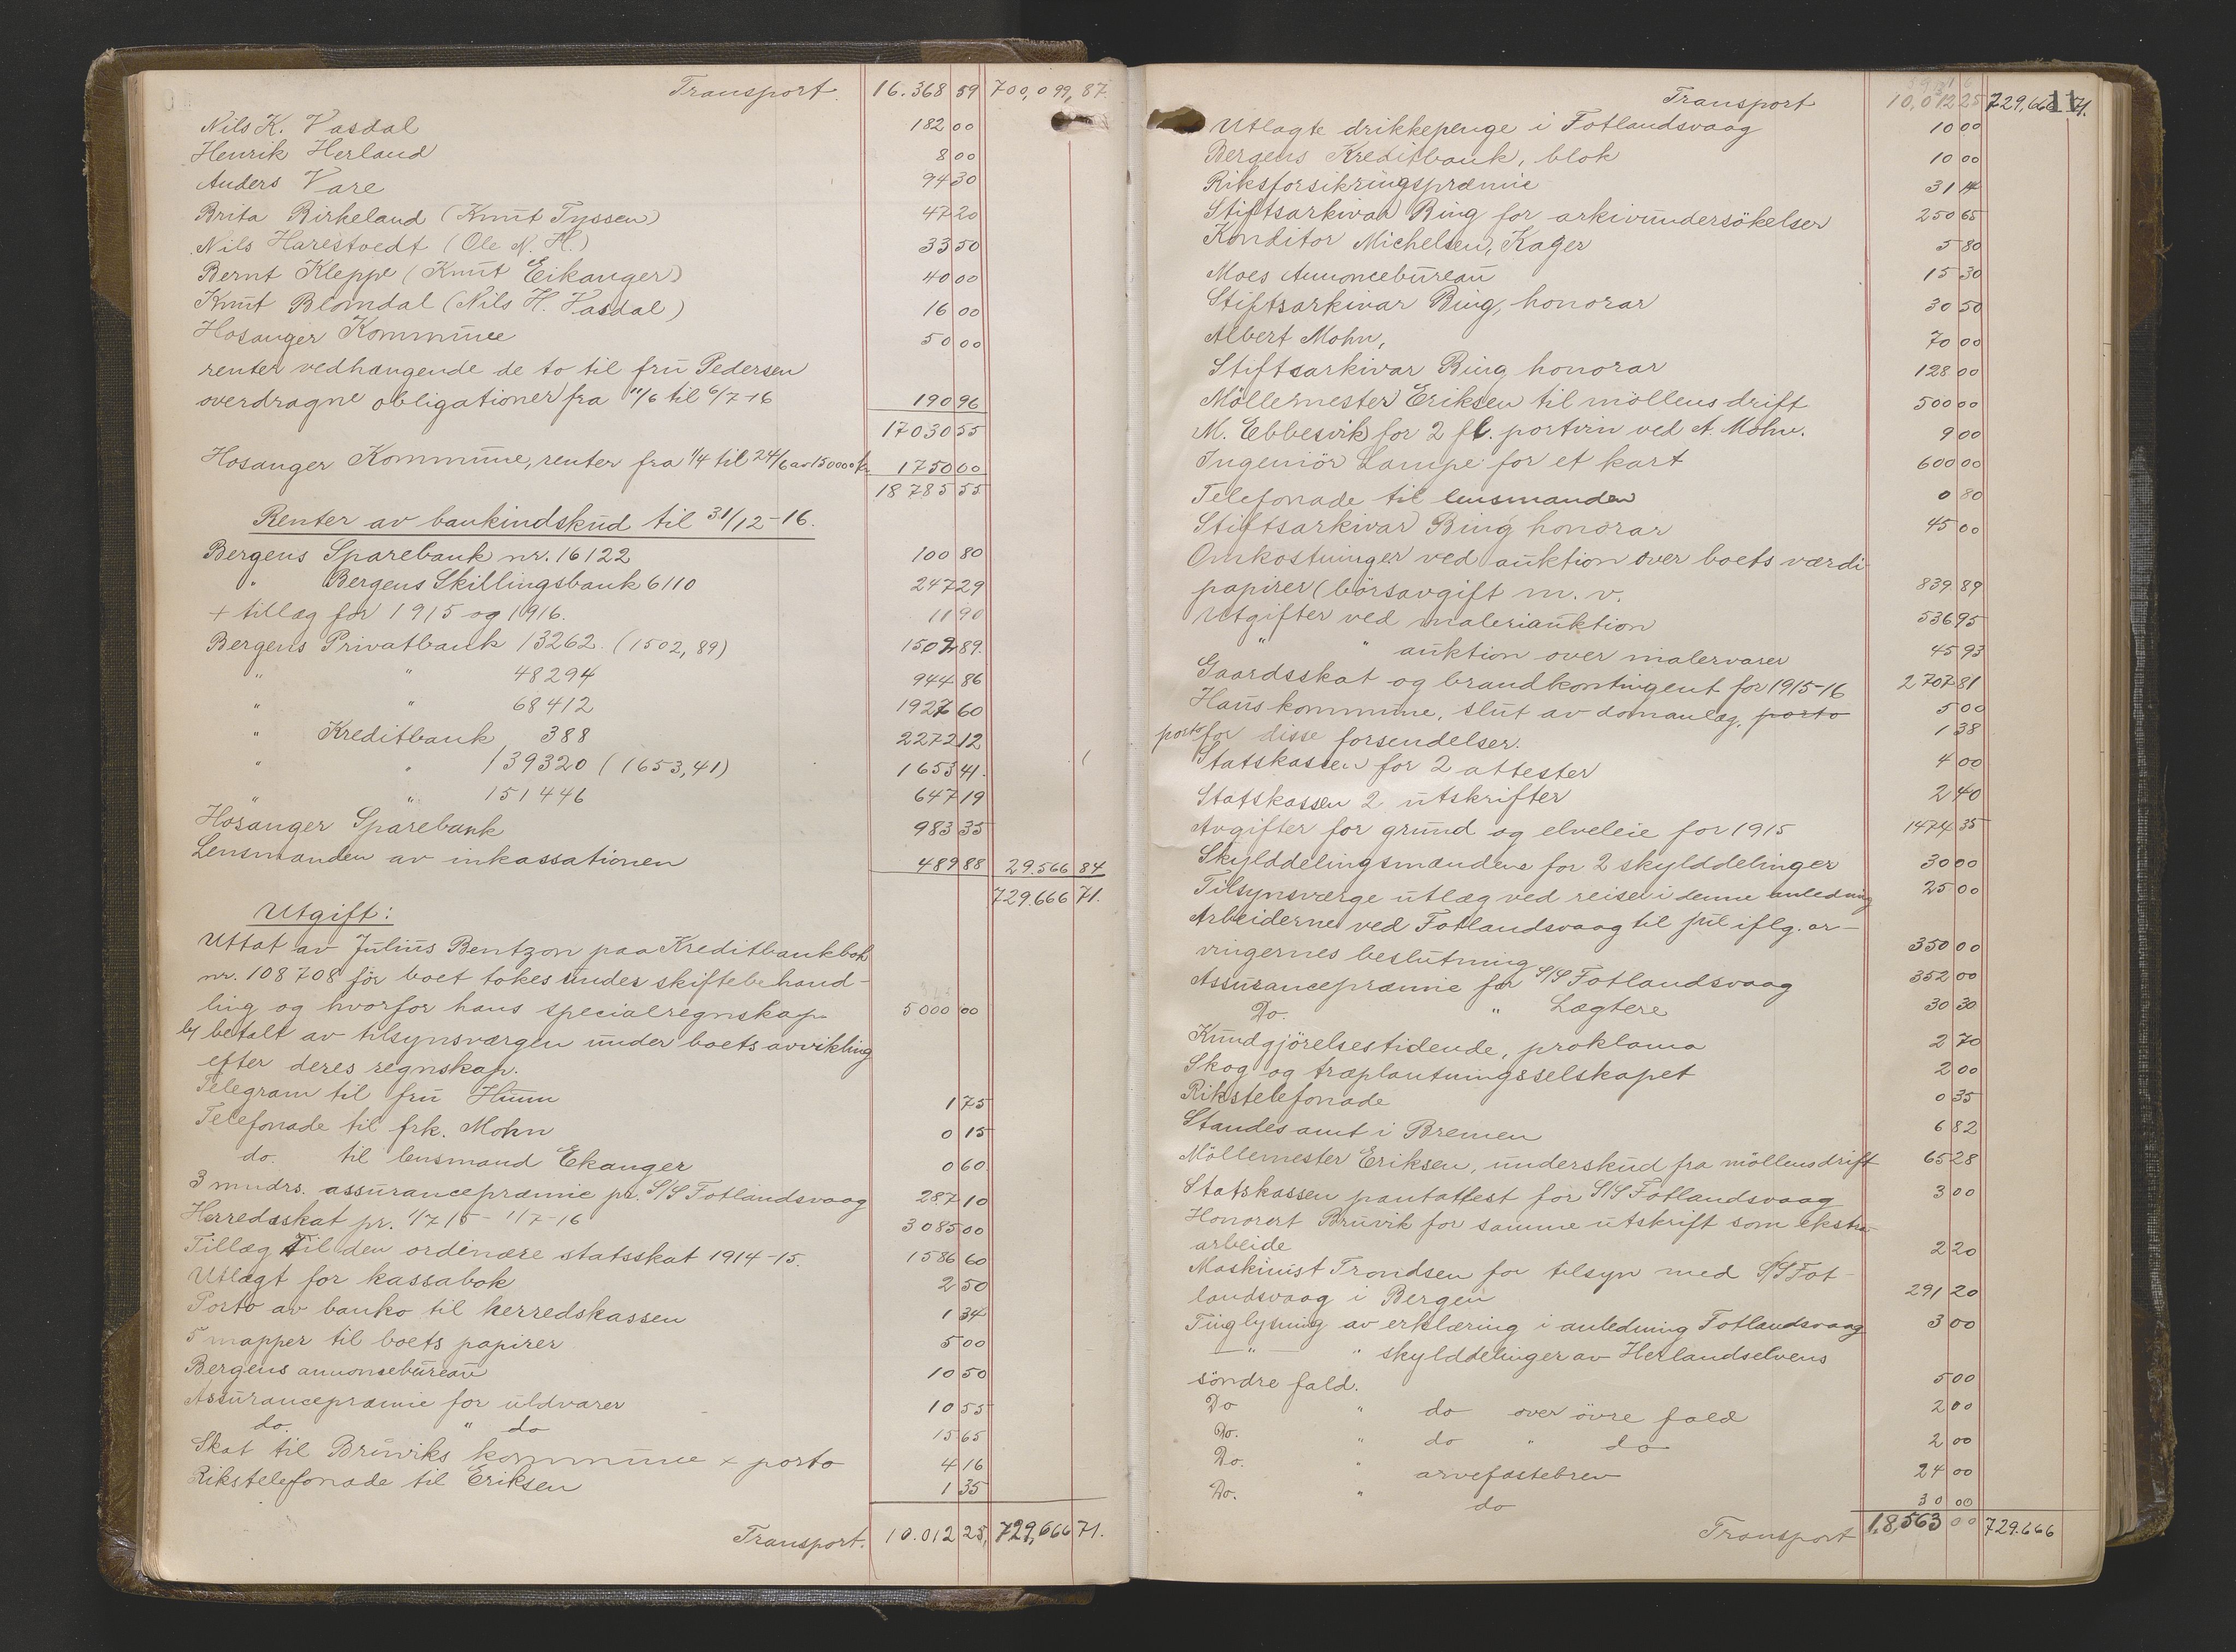 Transport. 16.368 59 700,099,87.
Nils K. Vasdal 182 00
Henrik Herland 8 00
Anders Vare 94 30
Brita Birkeland (Knut Tyssen) 47 20
Nils Harestvedt (Ole N. H.) 33 50
Bernt Kleppe (Knut Eikanger) 40 00
Knut Blomdal (Nils H. Vasdal) 16 00
Hosanger Kommune 50 00
renter vedhængende de to til fru Pedersen
overdragne obligationer fra 11/6 til 6/7-16 190 96
17030 55
Hosanger Kommune, renter fra 1/4 til 24/6 av 150000 kr. 1750 00
18785 55
Renter av bankindskud til 31/12-16.
Bergens Sparebank nr. 16122 100 80
" Bergens Skillingsbank 6110 247 29
+ tillæg for 1915 og 1916. 11 90
Bergens Privatbank 13262. (1502,89) 1502 89.
" " 48294 944 86
" " 68412 1927 60
" Kreditbank 388 2272 12
" " 139320 (1653,41) 1653 41.
" " 151446 647 19
Hosanger Sparebank 983 35
Lensmanden av inkassationen 489 88 29.566 84
729.666 71.
Utgift:
Uttat av Julius Bentzon paa Kreditbankbok
nr. 108708 för boet tokes under skiftebehand-
ling og hvorfor hans specialregnskap. 5000 00
b) betalt av tilsynsværgen under boets avvikling
efter deres regnskap.
Telegram til fru Huun 1 75
Telefonade til frk. Mohn 0 15
do. til lensmand Ekanger 0 60
3 mndrs. assurancepræmie pr. S/S Fotlandsvaag 287 10
Herredsskat pr. 1/7 15 - 1/7-16 3085 00
Tillæg til den ordinære statsskat 1914-15. 1586 60
Utlagt for kassabok 2 50
Porto av banko til herredskassen 1 34
5 mapper til boets papirer 5 00
Bergens annonsebureau 10 50
Assurancepræmie for uldvarer 10 55
do. " do 15 65
Skat til Bruviks kommune + porto 4 16
Rikstelefonade til Eriksen 1 35
Transport. 10.012 25, 729,666 71.
Transport 10,012 25 729,666 71.
Utlagte drikkepenge i Fotlandsvaag 10 00
Bergens Kreditbank, blok 10 00
Riksforsikringspræmie 31 14
Stiftsarkivar Bing for arkivundersökelser 250 65
Konditor Michelsen, Kager 5 80
Moes Annoncebureau 15 30
Stiftsarkivar Bing, honorar 30 50
Albert Mohn, 70 00
Stiftsarkivar Bing honorar 128 00
Möllemester Eriksen til möllens drift 500 00
M. Ebbesvik for 2 fl. portvin ved A. Mohn. 9 00
Ingeniör Lampe for et kart 600 00
Telefonade til lensmanden 0 80
Stiftsarkivar Bing honorar 45 00
Omkostninger ved auktion over boets værdi-
papirer (börsavgift m. v. 839 89
Utgifter ved maleriauktion 536 95
" " auktion over malervarer 45 93
Gaardsskat og brandkontingent for 1915-16 2707 81
Haus kommune, slut av domanlæg, porto 5 00
porto for disse forsendelser. 1 38
Statskassen for 2 attester 4 00
Statskassen 2 utskrifter 2 40
Avgifter for grund og elveleie for 1915 1474 35
Skylddelingsmændene for 2 skylddelinger 30 00
Tilsynsværge utlæg ved reise i denne anledning 25 00
Arbeiderne ved Fotlandsvaag til jul iflg. ar-
vingernes beslutning 350 00
Assurancepræmie for S/S Fotlandsvaag 352 00
Do. " Lægtere 30 30
Kundgjörelsestidende, proklama 2 70
Skog og træplantningsselskapet 2 00
Rikstelefonade 0 35
Standesamt i Bremen 6 82
Möllemester Eriksen, underskud fra möllens drift 65 28
Statskassen pantattest for S/S Fotlandsvaag 3 00
Honorert Bruvik for samme utskrift som ekstra
arbeide 2 20
Maskinist Trondsen for tilsyn med S/S Fot-
landsvaag i Bergen 291 20
Tinglysning av erklæring i anledning Fotlandsvaag 3 00
" " skylddelinger av Herlandselvens
söndre fald. 5 00
Do " do over övre fald 2 00
Do. " do " do 2 00
Do. " arvefæstebrev 24 00
Do. " do 30 00
Transport 18,563 00 729.666